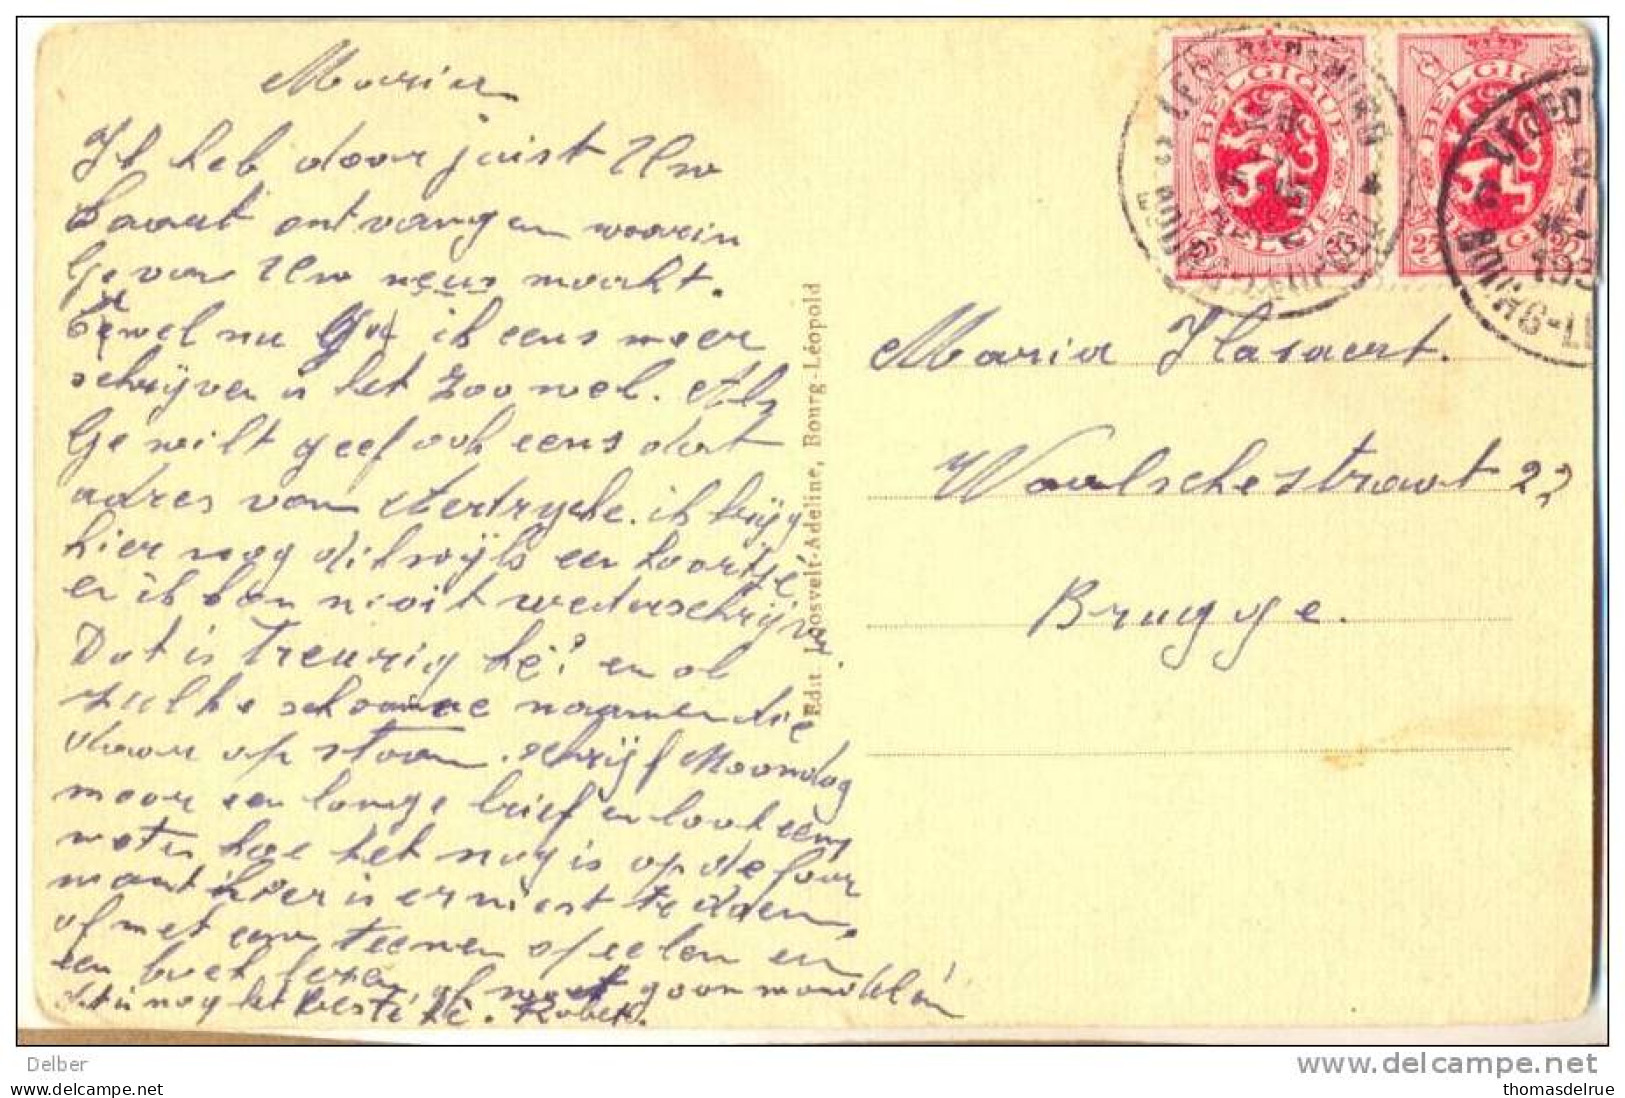 Maria
Ik heb daar juist Uw
kaart ontvangen waarin
Ge van Uw neus maakt.
wel nu Ga ik eens meer
schrijven is het zoo wel. Als
Ge wilt geef ook eens dat
adres van Aertrycke. ik krijg
hier nog dikwijls een kaartje
en ik kan nooit wederschrijven.
Dat is treurig hé? en al
zulke schoone naamen die
daar op staan. schrijf Maandag
maar een lange brief en laat eens
weten hoe het nog is op de foor
want hier is er niest te doen,
of met een teenen speelen en
een boek lezen of wat gaan wandelen
dat is nog het beste hé. Robert.
Edit. J. Josvelt-Adeline, Bourg-Léopold
BELGIQUE
BELGIE
25
BELGIQUE
BELGIE
25
193
Maria Hasaert.
Waalschestraat 22
Brugge.
Delber
delcampe.net
thomasdelrue